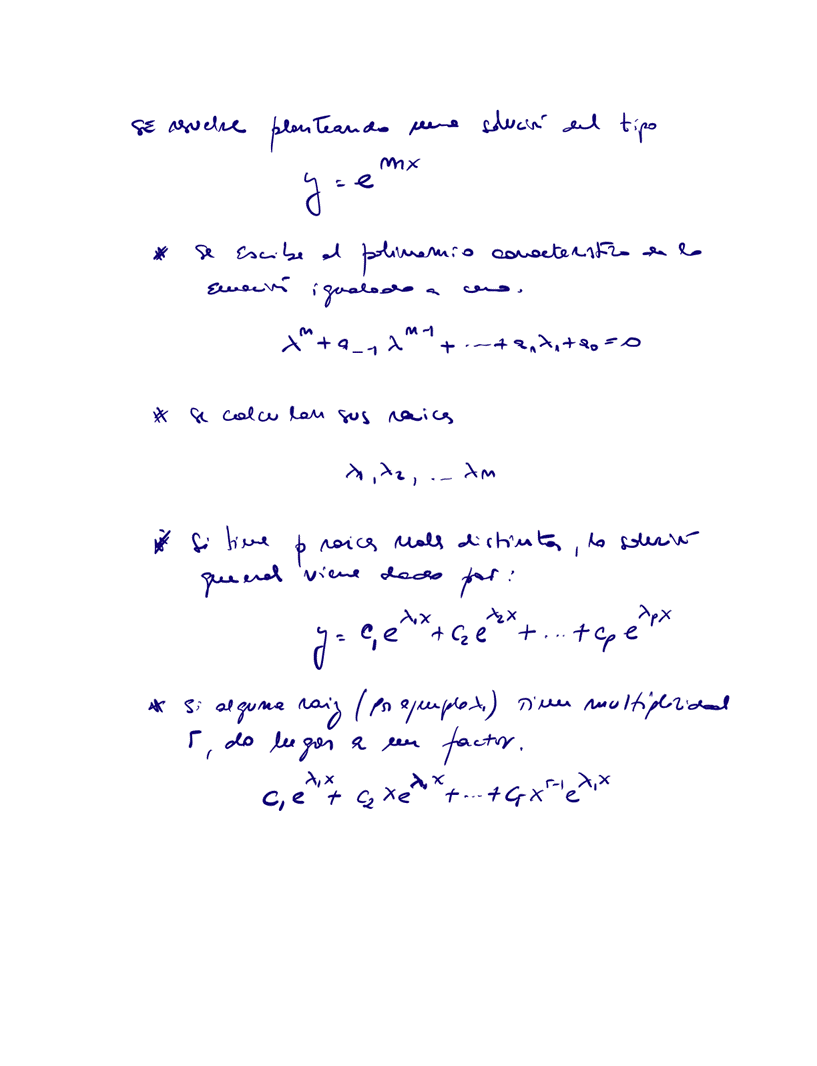 SE resuelve planteando una solución del tipo
y = e^{mx}
* Se escribe el polinomio caracteristico de la
ecuación igualado a cero.
λ^m + a_{-1} λ^{m-1} + ... + a_1 λ_1 + a_0 = 0
* Se calculan sus raices
λ_1, λ_2, ... λ_m
* Si tiene p raices reales distintas, la solución
general viene dada por:
y = C_1 e^{λ_1 x} + C_2 e^{λ_2 x} + ... + C_p e^{λ_p x}
* Si alguna raiz (por ejemplo λ_1) tiene multiplicidad
r, da lugar a un factor.
C_1 e^{λ_1 x} + C_2 x e^{λ_1 x} + ... + C_r x^{r-1} e^{λ_1 x}